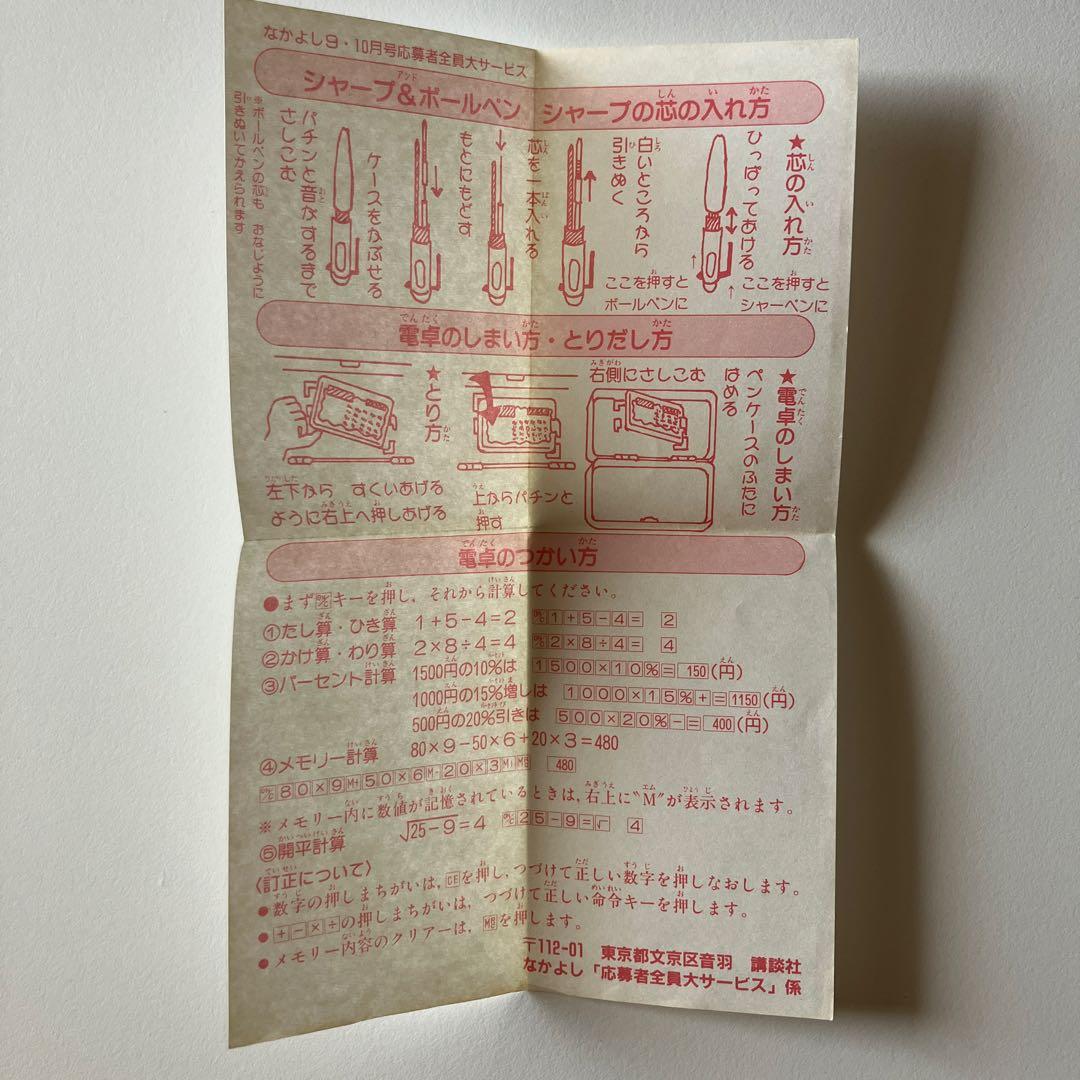 なかよし9・10月号応募者全員大サービス
シャープ&ボールペン シャープの芯の入れ方
★芯の入れ方
ひっぱってあける
ここを押すと
シャーペンに
ここを押すと
ボールペンに
白いところから
引きぬく
芯を一本入れる
もとにもどす
ケースをかぶせる
パチンと音がするまで
さしこむ
※ボールペンの芯も おなじように
引きぬいてかえられます
電卓のしまい方・とりだし方
★電卓のしまい方
ペンケースのふたに
はめる
右側にさしこむ
上からパチンと
押す
★とり方
左下から すくいあげる
ように右上へ押しあげる
電卓のつかい方
●まず ON/C キーを押し,それから計算してください。
①たし算・ひき算 1+5−4=2 ON/C 1+5−4= 2
②かけ算・わり算 2×8÷4=4 ON/C 2×8÷4= 4
③パーセント計算 1500円の10%は 1500×10%= 150(円)
1000円の15%増しは 1000×15%+= 1150(円)
500円の20%引きは 500×20%−= 400(円)
④メモリー計算 80×9−50×6+20×3=480
ON/C 80×9M+50×6M−20×3M+ 480
※メモリー内に数値が記憶されているときは,右上に"M"が表示されます。
⑤開平計算 √25−9=4 ON/C 25−9=√ 4
〈訂正について〉
●数字の押しまちがいは, CE を押し,つづけて正しい数字を押しなおします。
●+−×÷の押しまちがいは, つづけて正しい命令キーを押します。
●メモリー内容のクリアーは, を押します。
〒112-01 東京都文京区音羽 講談社
なかよし「応募者全員大サービス」係